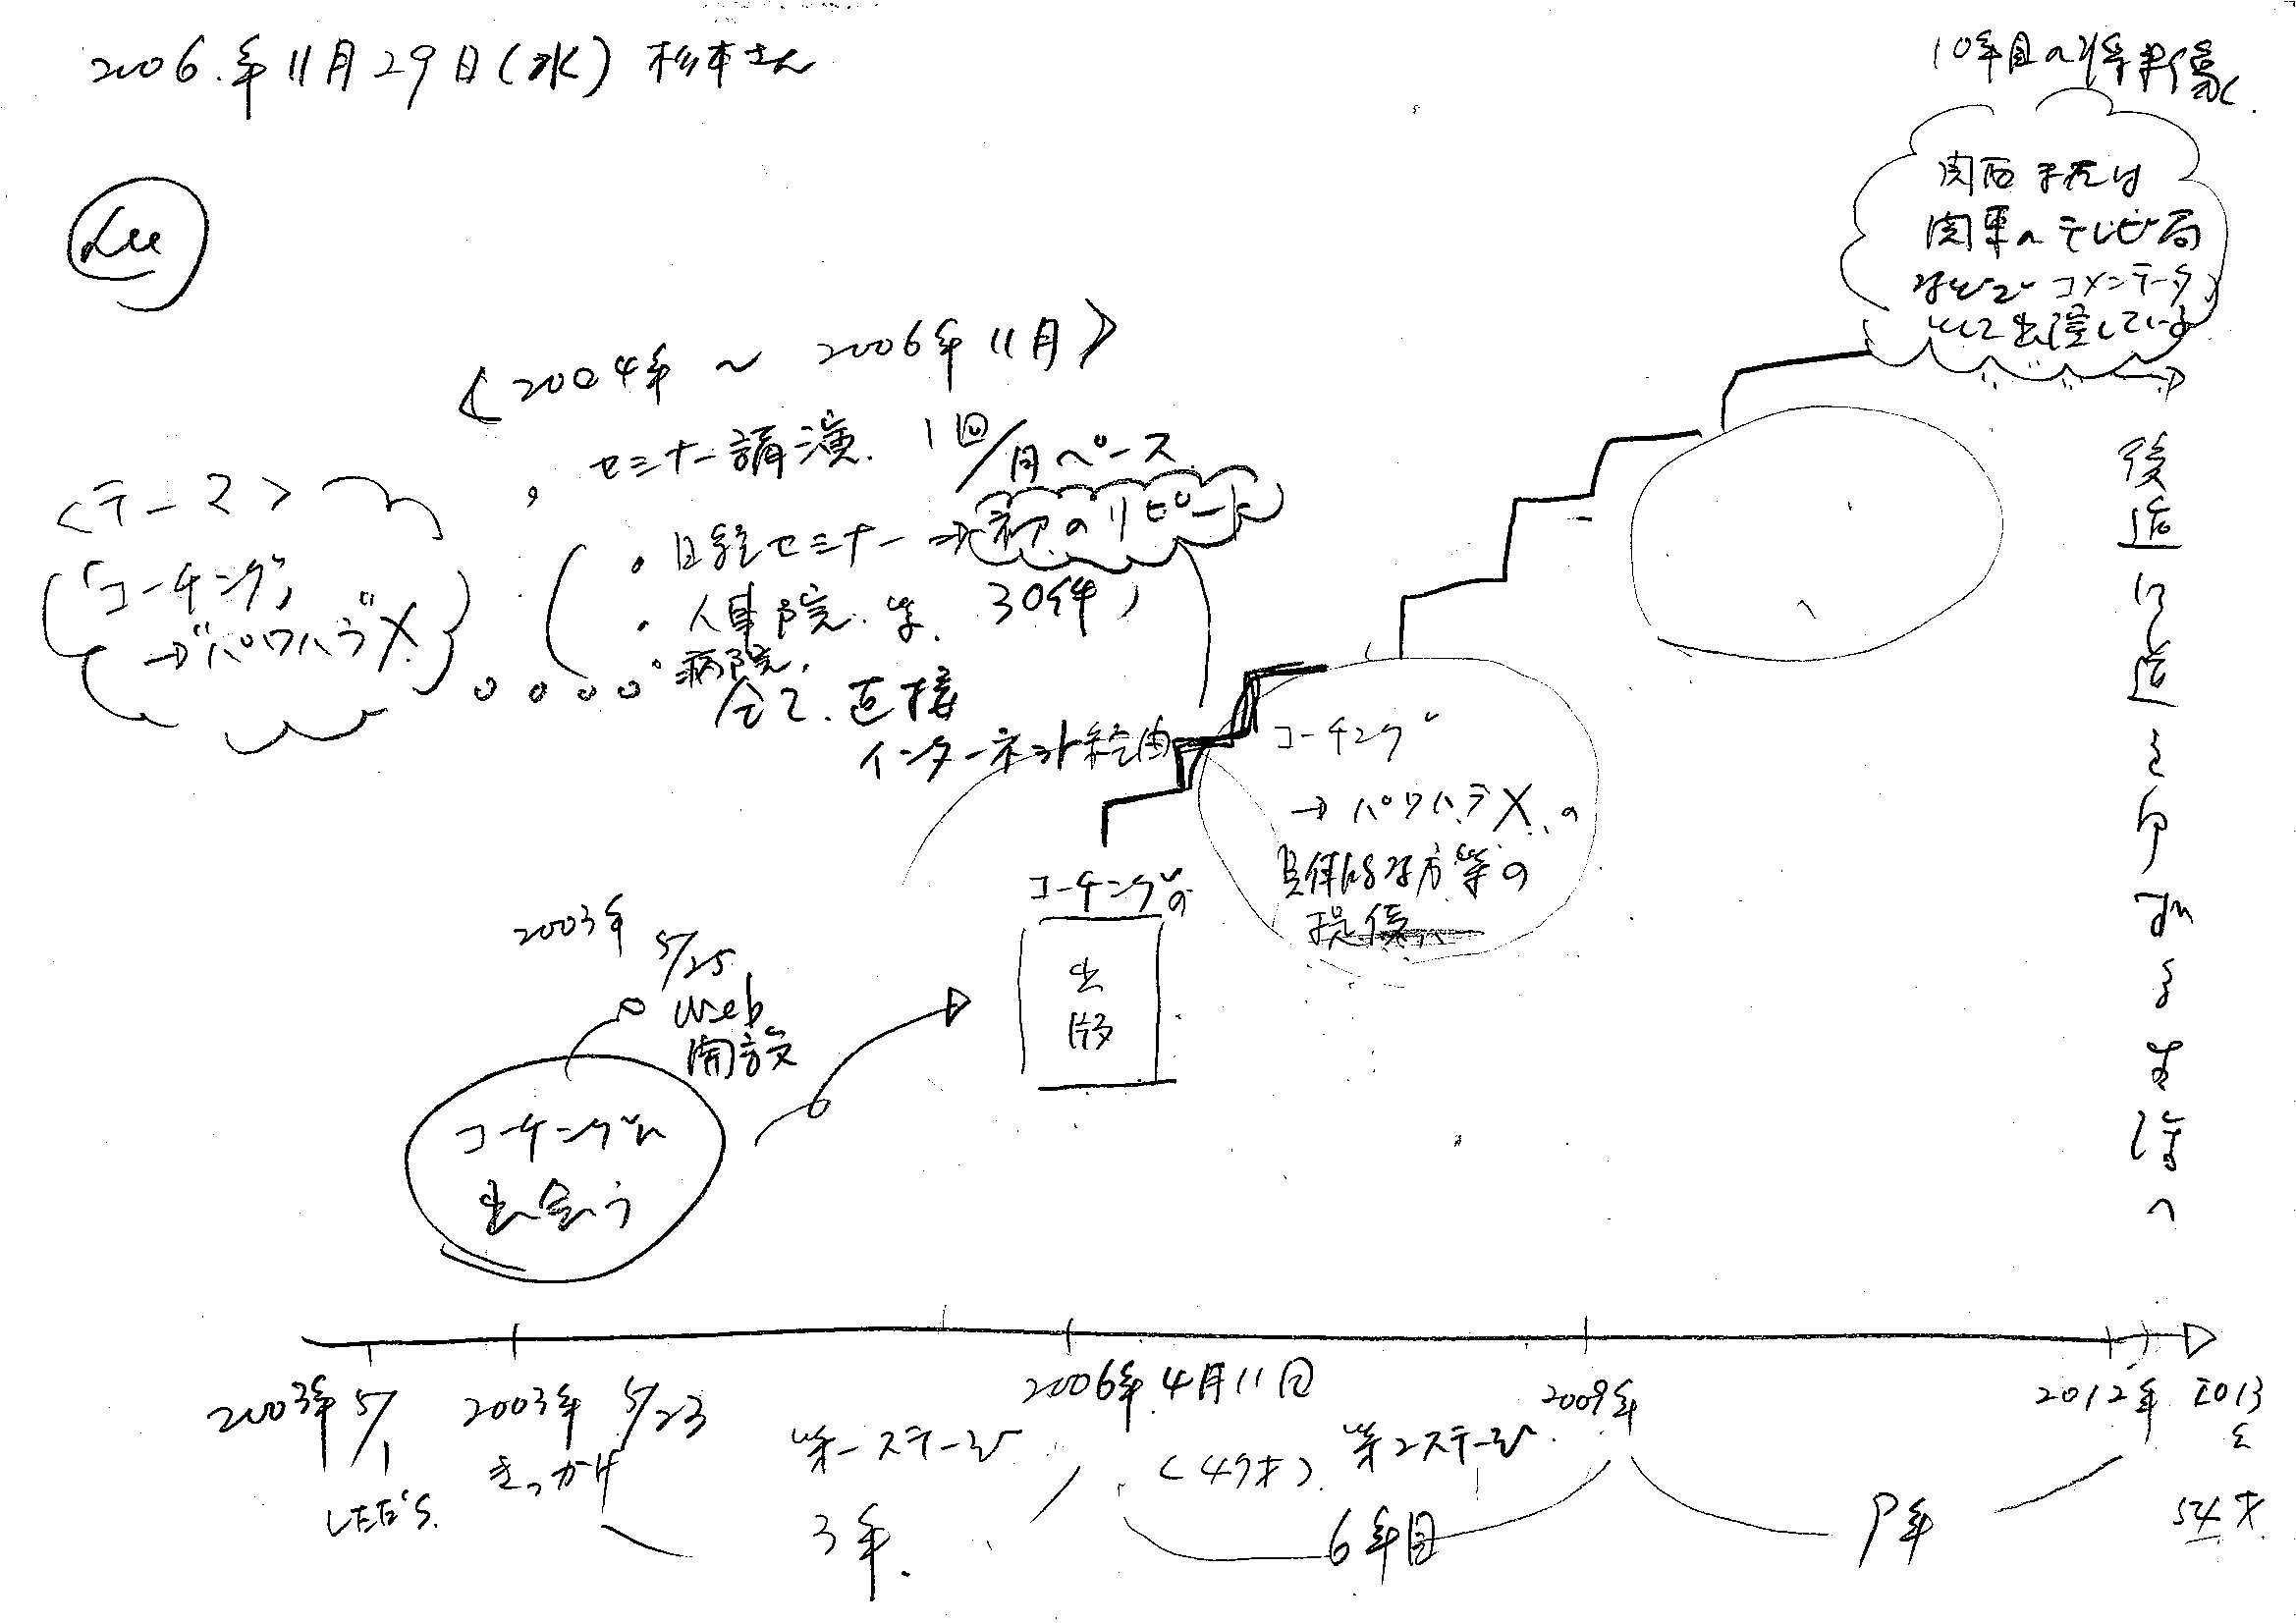 2006.年11月29日(水) 杉本さん
10年目の将来像
関西又は
関東のテレビ局
などで コメンテータ
として出演している
Lee
<2004年 〜 2006年11月>
・セミナー講演. 1回/月ペース
<テーマ>
「コーチング」
→"パワハラ"X
・日経セミナー → 初のリピート
・人事院. 等. 30件
・病院.
全て. 直接
インターネット経由
コーチング
→ パワハラX.の
具体的な方策の
提供
後追に道を
コーチングの
出版
2003年 5/25
Web
開設
コーチングに
出会う
2003年 5/1
LEE'S.
2003年 5/23
きっかけ
第一ステージ
3年.
2006年.4月11日
(47才)
第2ステージ
6年目
2009年
9年
2012年
2013
54才